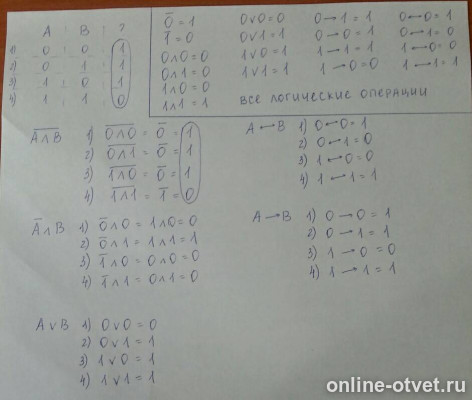 A B ?
1) 0 0 1
2) 0 1 1
3) 1 0 1
4) 1 1 0
0̅ = 1
1̅ = 0
0∧0 = 0
0∧1 = 0
1∧0 = 0
1∧1 = 1
0∨0 = 0
0∨1 = 1
1∨0 = 1
1∨1 = 1
0→1 = 1
0→0 = 1
1→1 = 1
1→0 = 0
0↔0 = 1
0↔1 = 0
1↔0 = 0
1↔1 = 1
ВСЕ ЛОГИЧЕСКИЕ ОПЕРАЦИИ
A̅∧̅B̅ 1) 0̅∧̅0̅ = 0̅ = 1
2) 0̅∧̅1̅ = 0̅ = 1
3) 1̅∧̅0̅ = 0̅ = 1
4) 1̅∧̅1̅ = 1̅ = 0
A↔B 1) 0↔0 = 1
2) 0↔1 = 0
3) 1↔0 = 0
4) 1↔1 = 1
A̅∧B 1) 0̅∧0 = 1∧0 = 0
2) 0̅∧1 = 1∧1 = 1
3) 1̅∧0 = 0∧0 = 0
4) 1̅∧1 = 0∧1 = 0
A→B 1) 0→0 = 1
2) 0→1 = 1
3) 1→0 = 0
4) 1→1 = 1
A∨B 1) 0∨0 = 0
2) 0∨1 = 1
3) 1∨0 = 1
4) 1∨1 = 1
online-otvet.ru